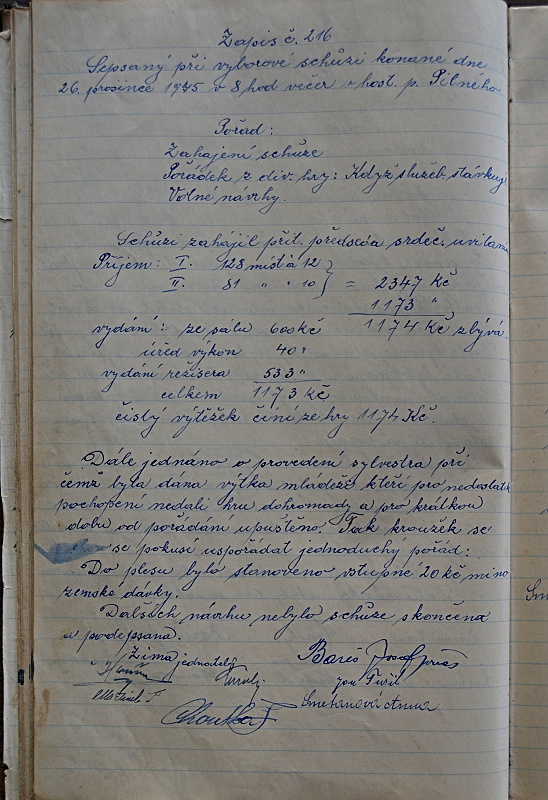 Zapis č. 216
Sepsaný při vyborové schůzi konané dne
26. prosince 1945 v 8 hod večer v host. p. Pilného
Pořad:
Zahajení schůze
Pořádek z div. hry: Když služeb. stávkují
Volné návrhy.
Schůzi zahájil přít. předscóa srdeč. uvítaním
Příjem: I. 128 míst à 12
II. 81 " " 10 } = 2347 Kč
1173 "
vydání: ze sálu 600 kč 1174 Kč zbývá.
úřed výkon 40 "
vydání režisera 533 "
celkem 1173 kč
čistý výtěžek činí ze hry 1174 Kč.
Dále jednáno o provedení sylvestra při
čemž byla dána výtka mládeže kteři pro nedostatek
pochopení nedali hru dohromady a pro krátkou
dobu od pořádání upuštěno. Tak kroužek se
se pokusí uspořádat jednoduchy pořád:
Do plesu bylo stanoveno vstupné 20 kč mimo
zemské dávky.
Dalších návrhu nebylo schůze skončena
a podepsana.
Zima jednatel Bareš Josef
Smetanová Anna
Koutka